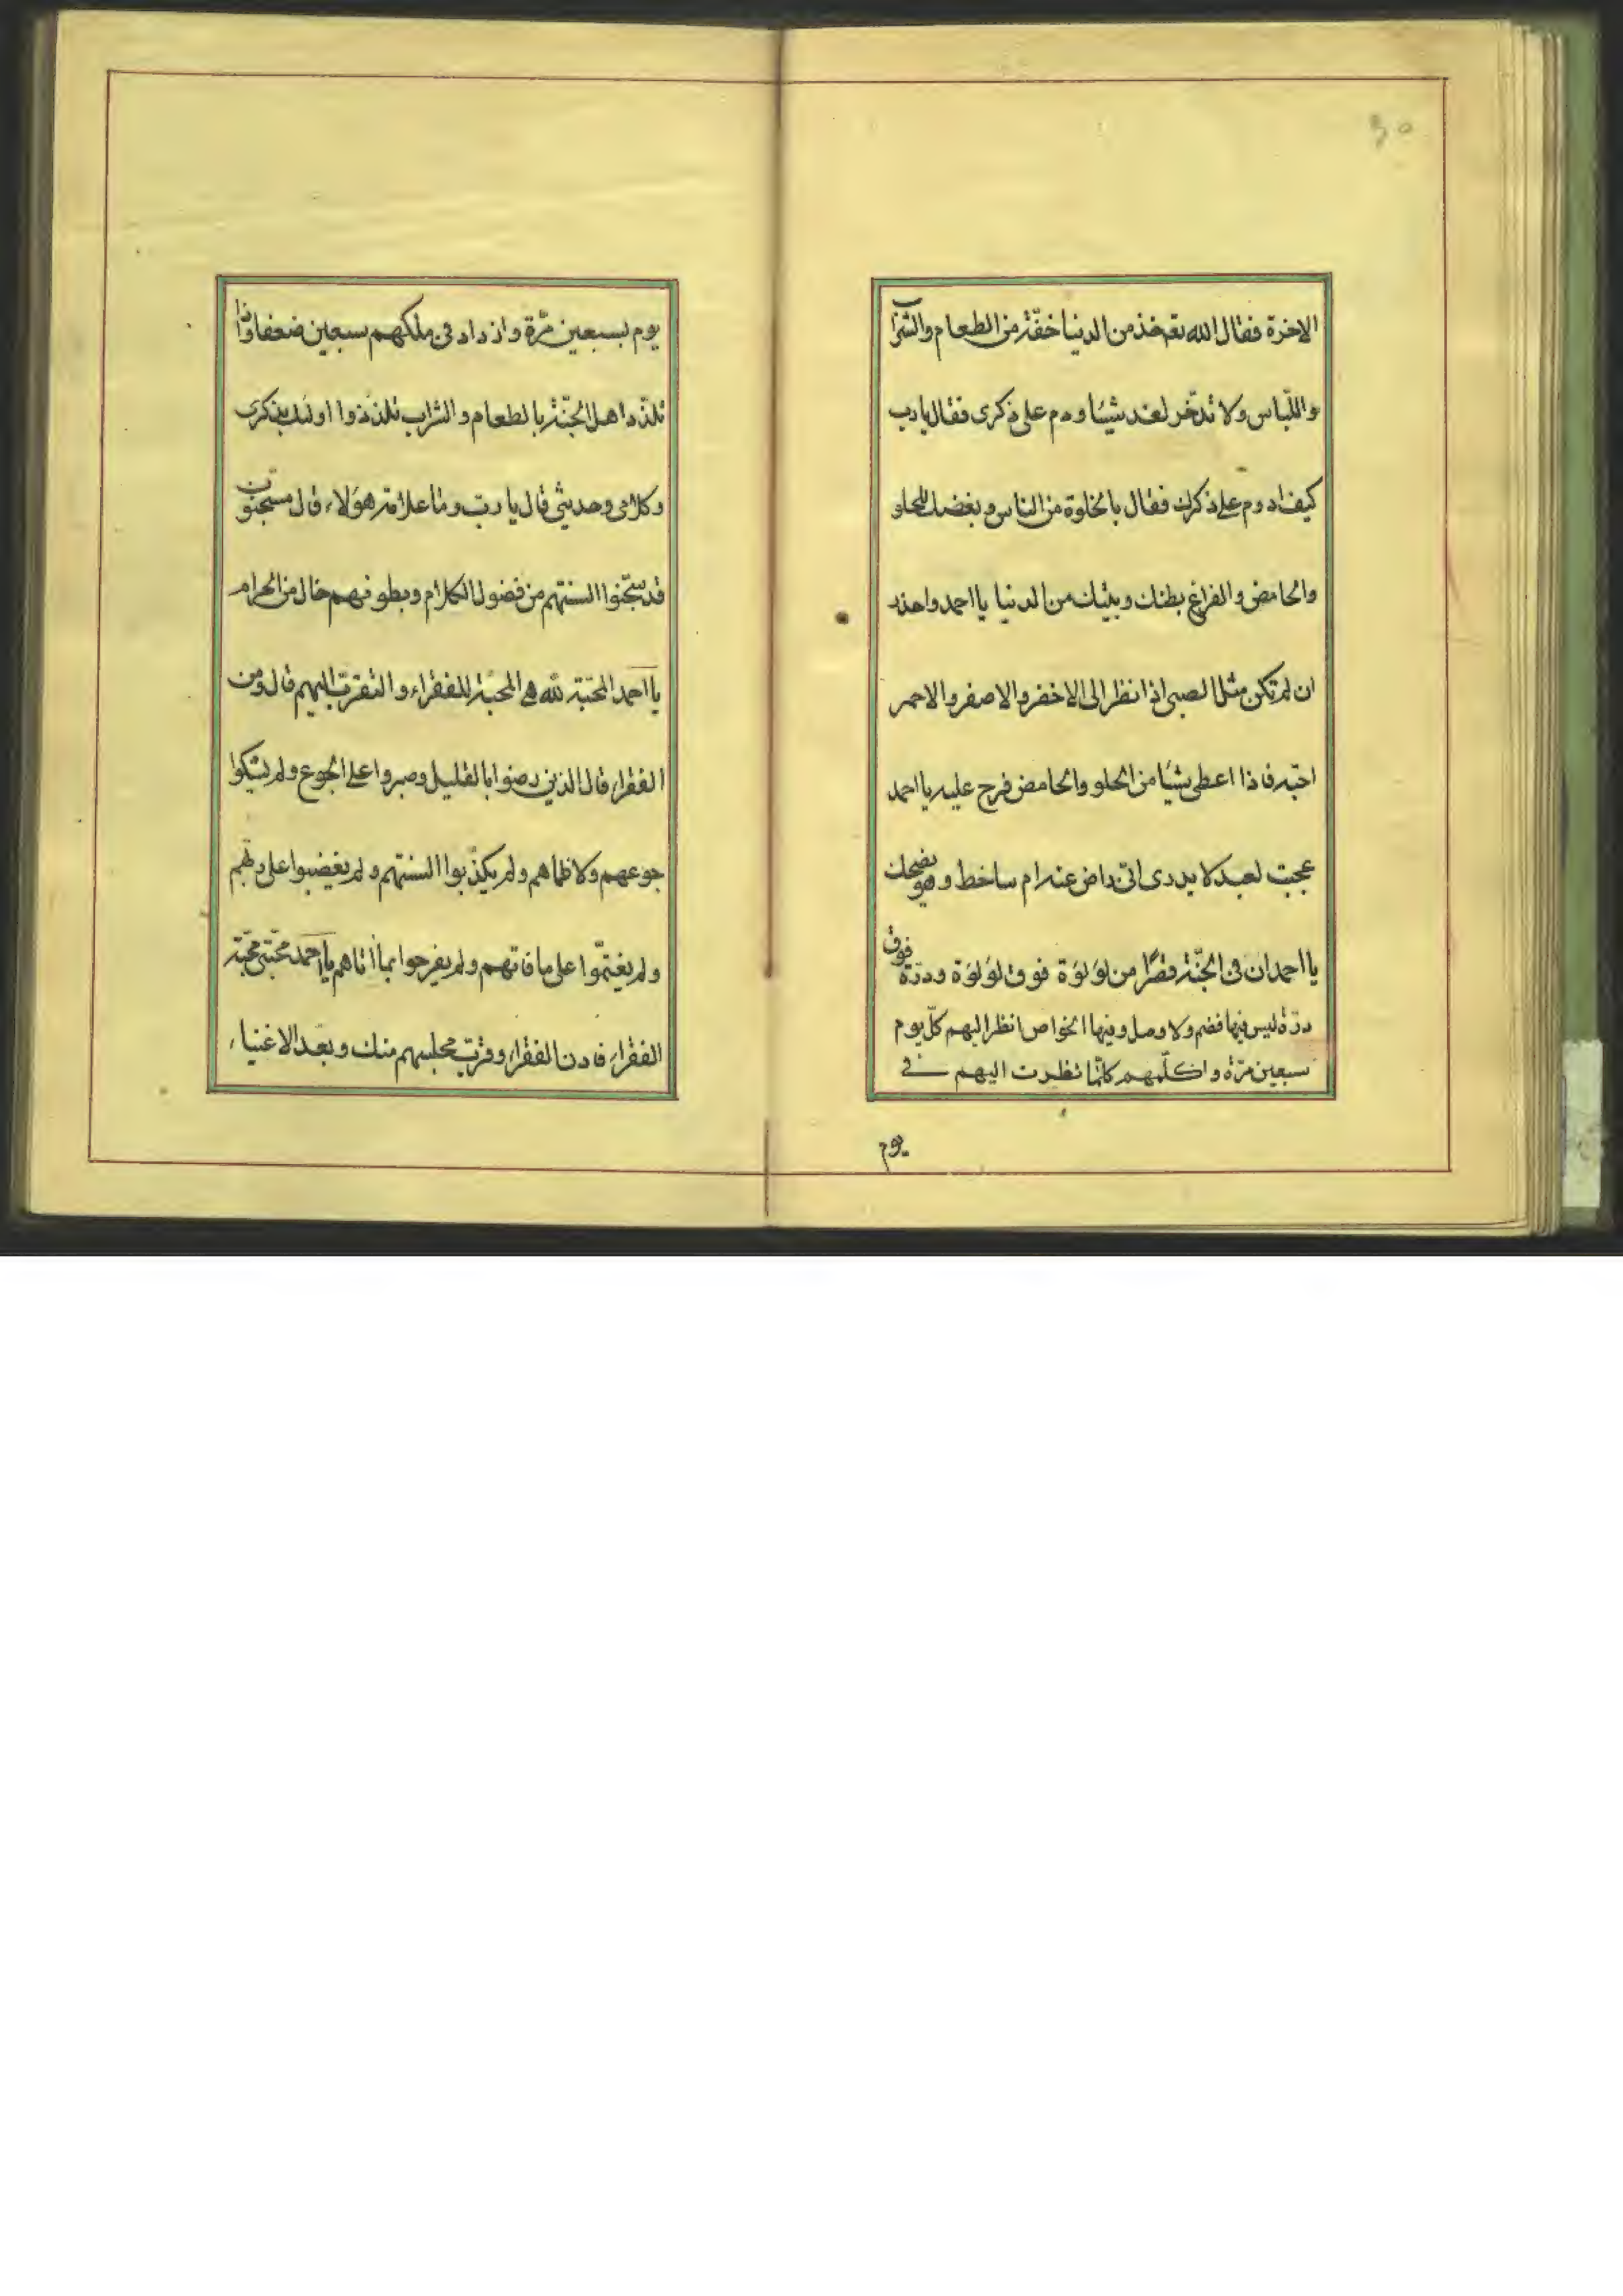 ٣٠
الاخرة فقال الله تع خذ من الدنيا خفّة من الطعام والشراب
واللّباس ولا تدّخر لغد شيئا ودم على ذكرى فقال يا رب
كيف ادوم على ذكرك فقال بالخلوة من الناس و بغضك للحلو
والحامض والفراغ بطنك وبيتك من الدنيا يا احمد واحذر
ان لم تكن مثل الصبى اذا نظر الى الاخضر والاصفر والاحمر
احبّه فاذا اعطى شيئا من الحلو والحامض فرح عليه يا احمد
عجبت لعبد لا يدرى انّى راض عنه ام ساخط وهو يضحك
يا احمد ان فى الجنّة قصرًا من لؤلؤة فوق لؤلؤة ودرّة فوق
درّة ليس فيها فصم ولا وصل وفيها الخواص انظر اليهم كلّ يوم
سبعين مرّة و اكلّمهم كلّما نظرت اليهم فى
يوم
يوم بسبعين مرّة وازداد فى ملكهم سبعين ضعفا واذا
تلذّذ اهل الجنّة بالطعام والشراب تلذّذوا اولئك بذكرى
وكلامى وحديثى قال يا ربّ وما علامة هؤلاء قال مسجونون
قد سجّنوا السنتهم من فضول الكلام وبطونهم خال من الحرام
يا احمد المحبّة لله هى المحبّة للفقراء والتقرّب اليهم قال ومن
الفقراء قال الذين رضوا بالقليل وصبروا على الجوع ولم يشكوا
جوعهم ولا ظمأهم ولم يكذّبوا السنتهم ولم يغضبوا على ربّهم
ولم يغتمّوا على ما فاتهم ولم يفرحوا بما اتاهم يا احمد محبّتى محبّة
الفقراء فادن الفقراء وقرّب مجلسهم منك وبعّد الاغنياء